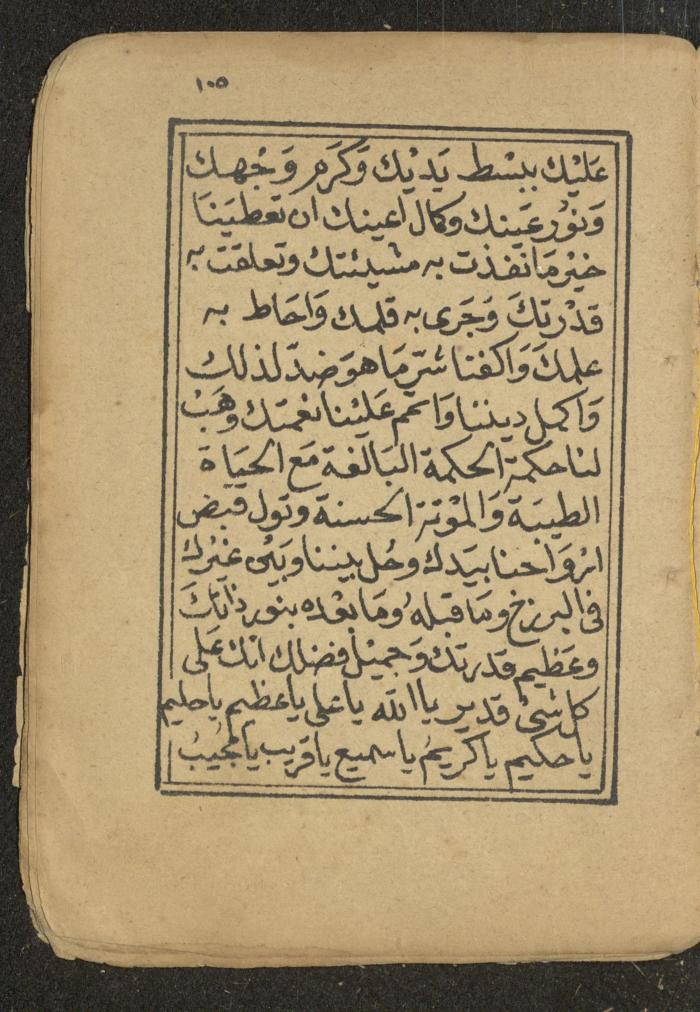 ١٠٥
عَلَيْكَ ببَسْط يَدَيْكَ وَكَرَمِ وَجْهِكَ
وَنُوْرِعَيَنِكَ وكمال اعينك ان تعطيَنَا
خَيْرمَا نَفَذت به مشيئتك وتعلقت به
قدْرتكَ وَجَرى به قلمك وَاحَاط به
علمكَ وَاكفنا شرّمَا هوَضدّ لذلك
وَاكمل ديننا وَاتمم عَليْنا نعْمتك وهَبْ
لنا حكمة الحكمة البَالغة مَع الحيَاة
الطيبَة وَالموْتة الحسنة وتول قبض
ارْوَاحنا بيَدك وحُل بيننا وبَيْن غيْرك
فى البرزخ ومَا قبله ومَا بعْده بنور ذاتك
وعَظيم قدرتك وَجميْل فضلك انك عَلى
كل شئ قدير يا الله يا على يا عظيم يا حليم
يا حكيم يا كريمُ يا سميع يا قريب يا مجيبُ